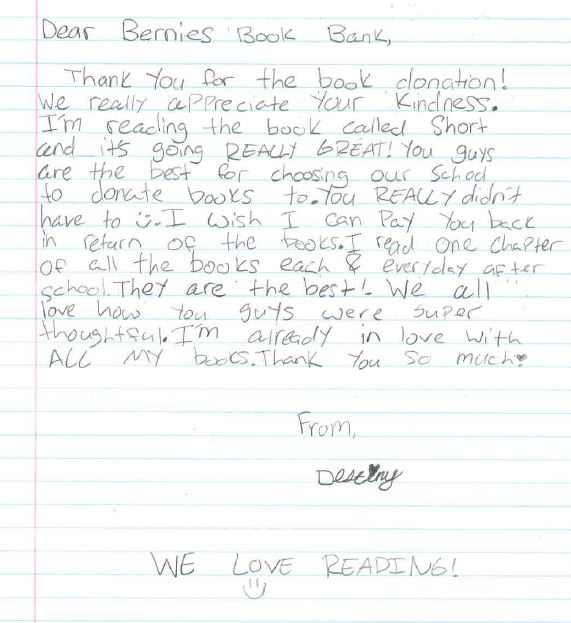 Dear Bernies Book Bank,
Thank You for the book donation!
We really appreciate Your kindness.
I'm reading the book called Short
and it's going REALLY GREAT! You guys
are the best for choosing our School
to donate books to. You REALLY didn't
have to ü. I wish I can Pay You back
in return of the books. I read one Chapter
of all the books each & everyday after
school. They are the best! We all
love how You guys were super
thoughtful. I'm already in love with
ALL MY books. Thank You so much♥
From,
Destiny
WE LOVE READING!